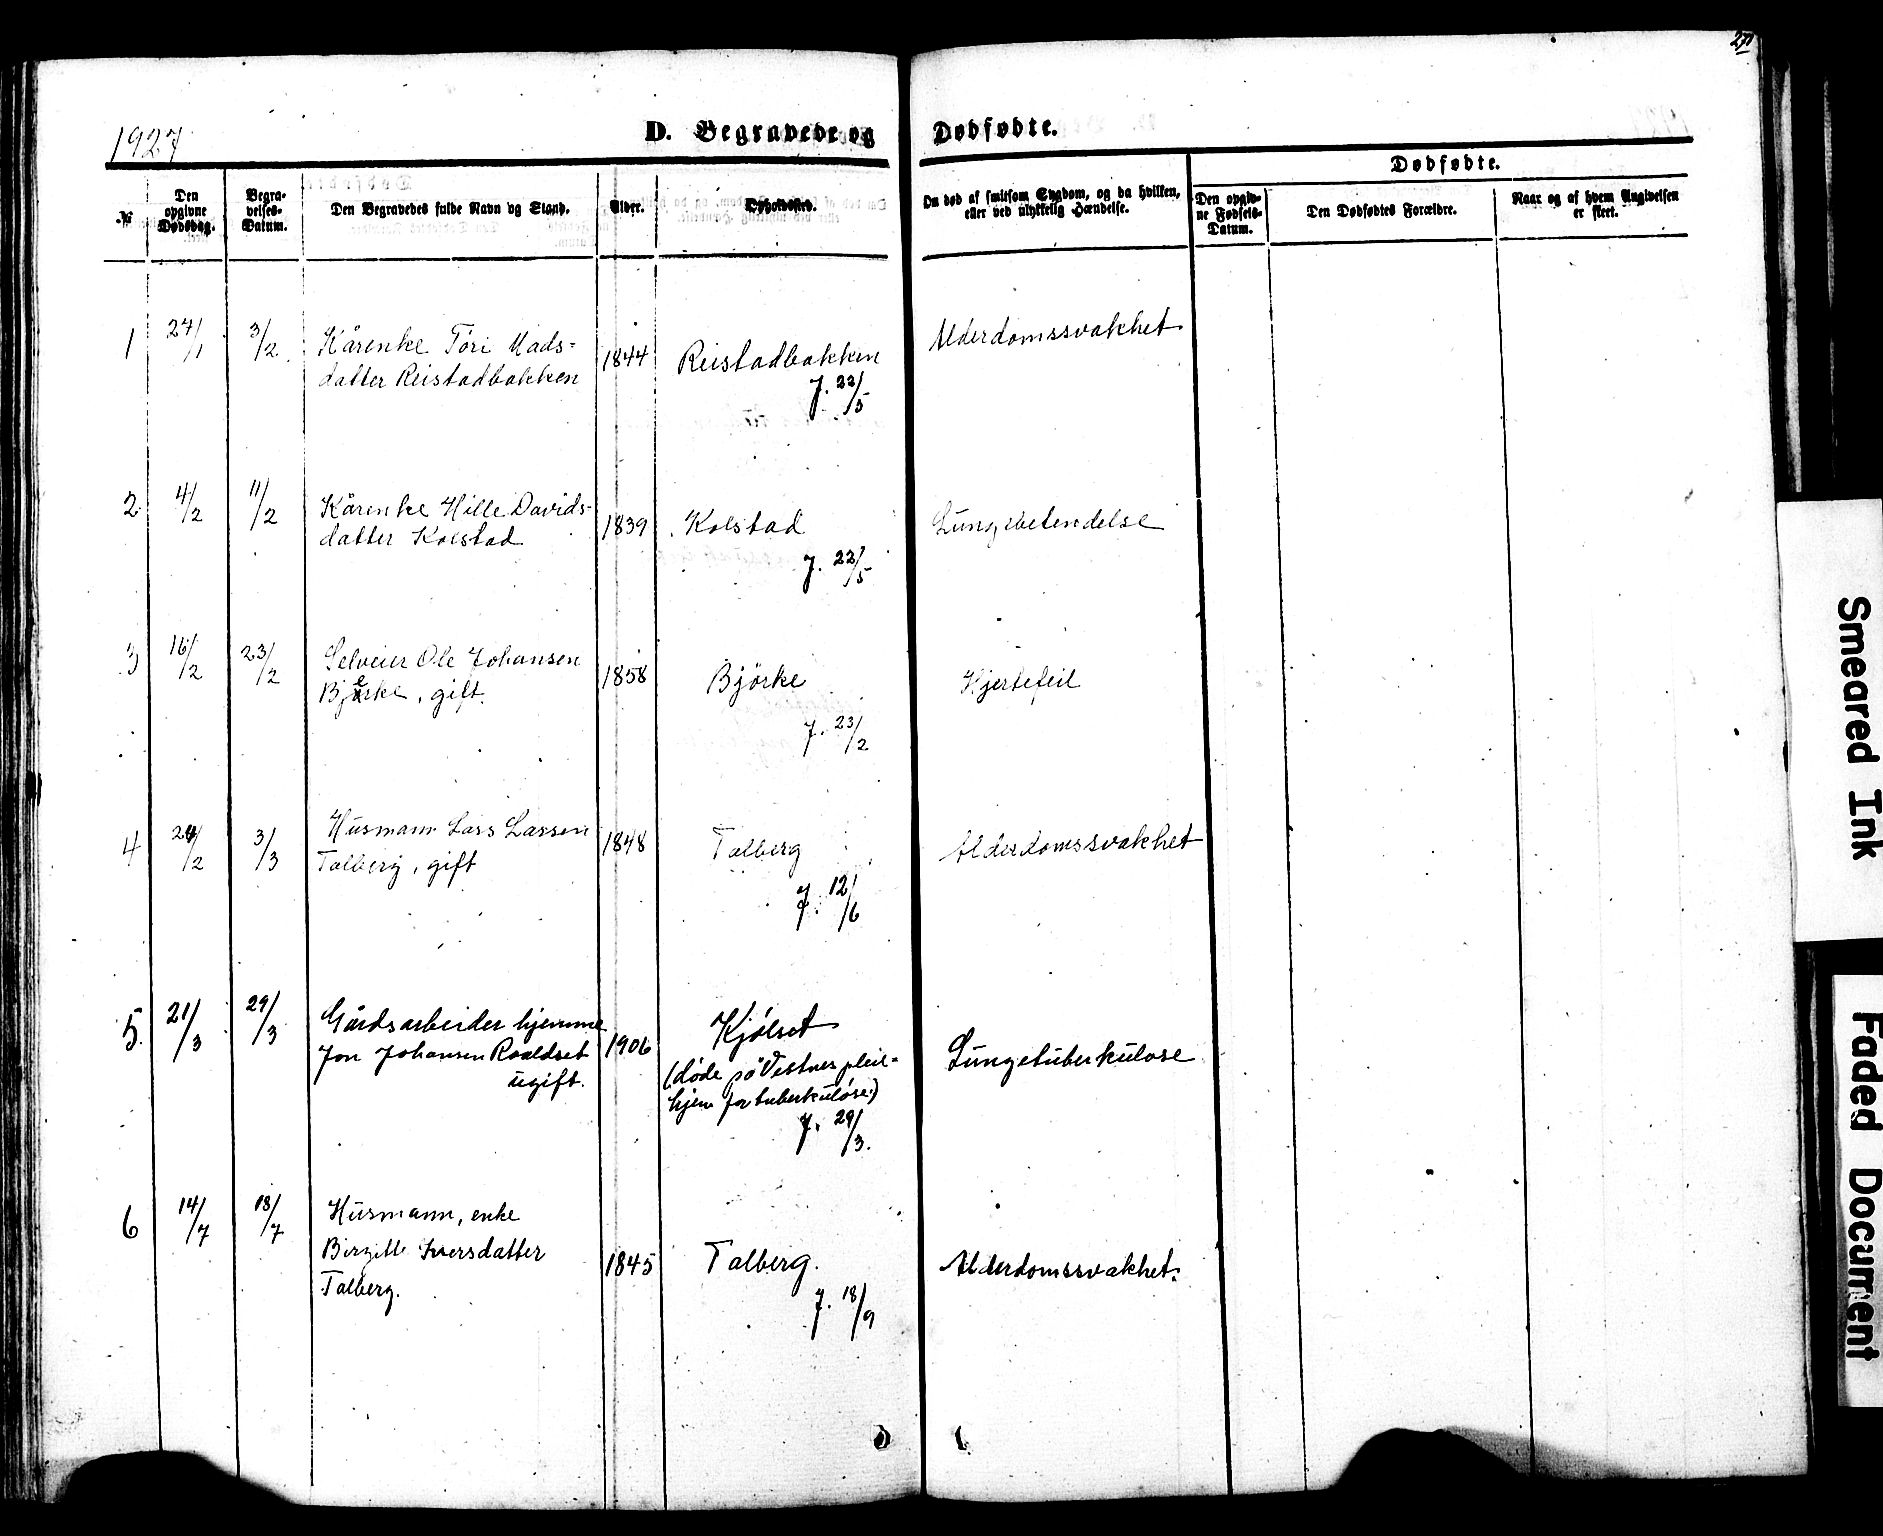 270
1927
D. Begravede og Dødfødte.
Dødfødte.
№
Den opgivne Dødsdag.
Begravelses-Datum.
Den Begravedes fulde Navn og Stand.
Alder.
Opholdssted.
Om død af smitsom Sygdom, og da hvilken,
eller ved ulykkelig Hændelse.
Den opgivne Fødsels-Datum.
Den Dødfødtes Forældre.
Naar og af hvem Angivelsen
er skeet.
1 27/1 3/2 Kårenke Töri Mads- 1844 Reistadbakken Alderdomssvakhet
datter Reistadbakken
J. 22/5
2 4/2 11/2 Kårenke Hille Davids- 1839 Kolstad Lungebetendelse
datter Kolstad
J. 22/5
3 16/2 23/2 Selveier Ole Johansen 1858 Björke Hjertefeil
Bjerke, gift.
J. 23/2
4 24/2 3/3 Husmann Lars Larsen 1848 Talberg Alderdomssvakhet
Talberg, gift
J. 12/6
5. 21/3 29/3 Gårdsarbeider hjemme 1906 Kjölset Lungetuberkulose
Jon Johansen Roaldset
ugift.
(döde på Vestnes pleie-
hjem for tuberkulöse.)
J. 29/3.
6 14/7 18/7 Husmann, enke 1845 Talberg. Alderdomssvakhet.
Birgitte Iversdatter
Talberg.
J. 18/9
Smeared Ink
Faded Document